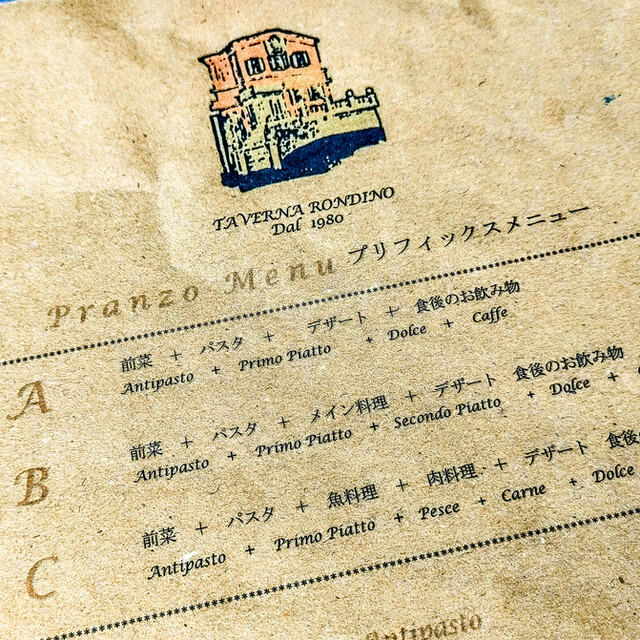 TAVERNA RONDINO
Dal 1980
Pranzo Menu プリフィックスメニュー
A
前菜 + パスタ + デザート + 食後のお飲み物
Antipasto + Primo Piatto + Dolce + Caffe
B
前菜 + パスタ + メイン料理 + デザート 食後のお飲み物
Antipasto + Primo Piatto + Secondo Piatto + Dolce +
C
前菜 + パスタ + 魚料理 + 肉料理 + デザート 食後の
Antipasto + Primo Piatto + Pesce + Carne + Dolce
Antipasto